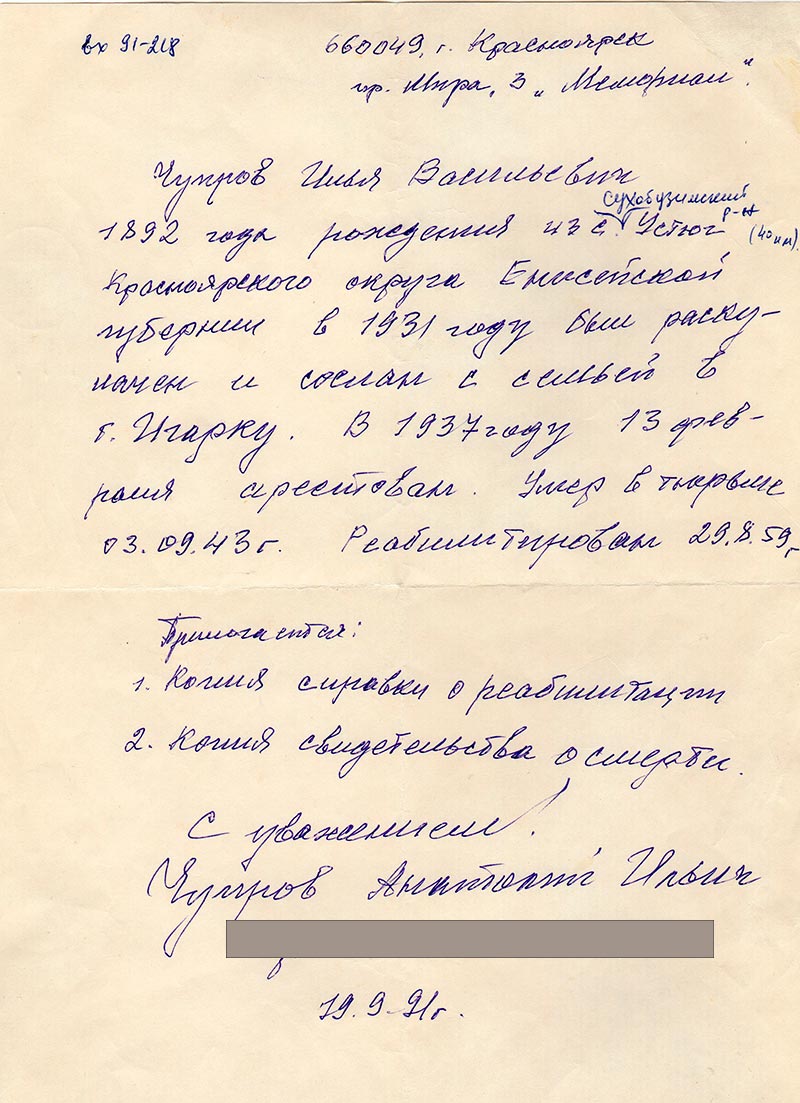 вх 91-218
660049, г. Красноярск
пр. Мира, 3 „Мемориал“.
Чупров Илья Васильевич
Сухобузимский
р-н
1892 года рождения из с. Устюг (40 км).
Красноярского округа Енисейской
губернии в 1931 году был раску-
лачен и сослан с семьей в
г. Игарку. В 1937 году 13 фев-
раля арестован. Умер в тюрьме
03.09.43 г. Реабилитирован 29.8.59 г
Прилагается:
1. Копия справки о реабилитации
2. Копия свидетельства о смерти.
С уважением!
Чупров Анатолий Ильич
19.9-91г.